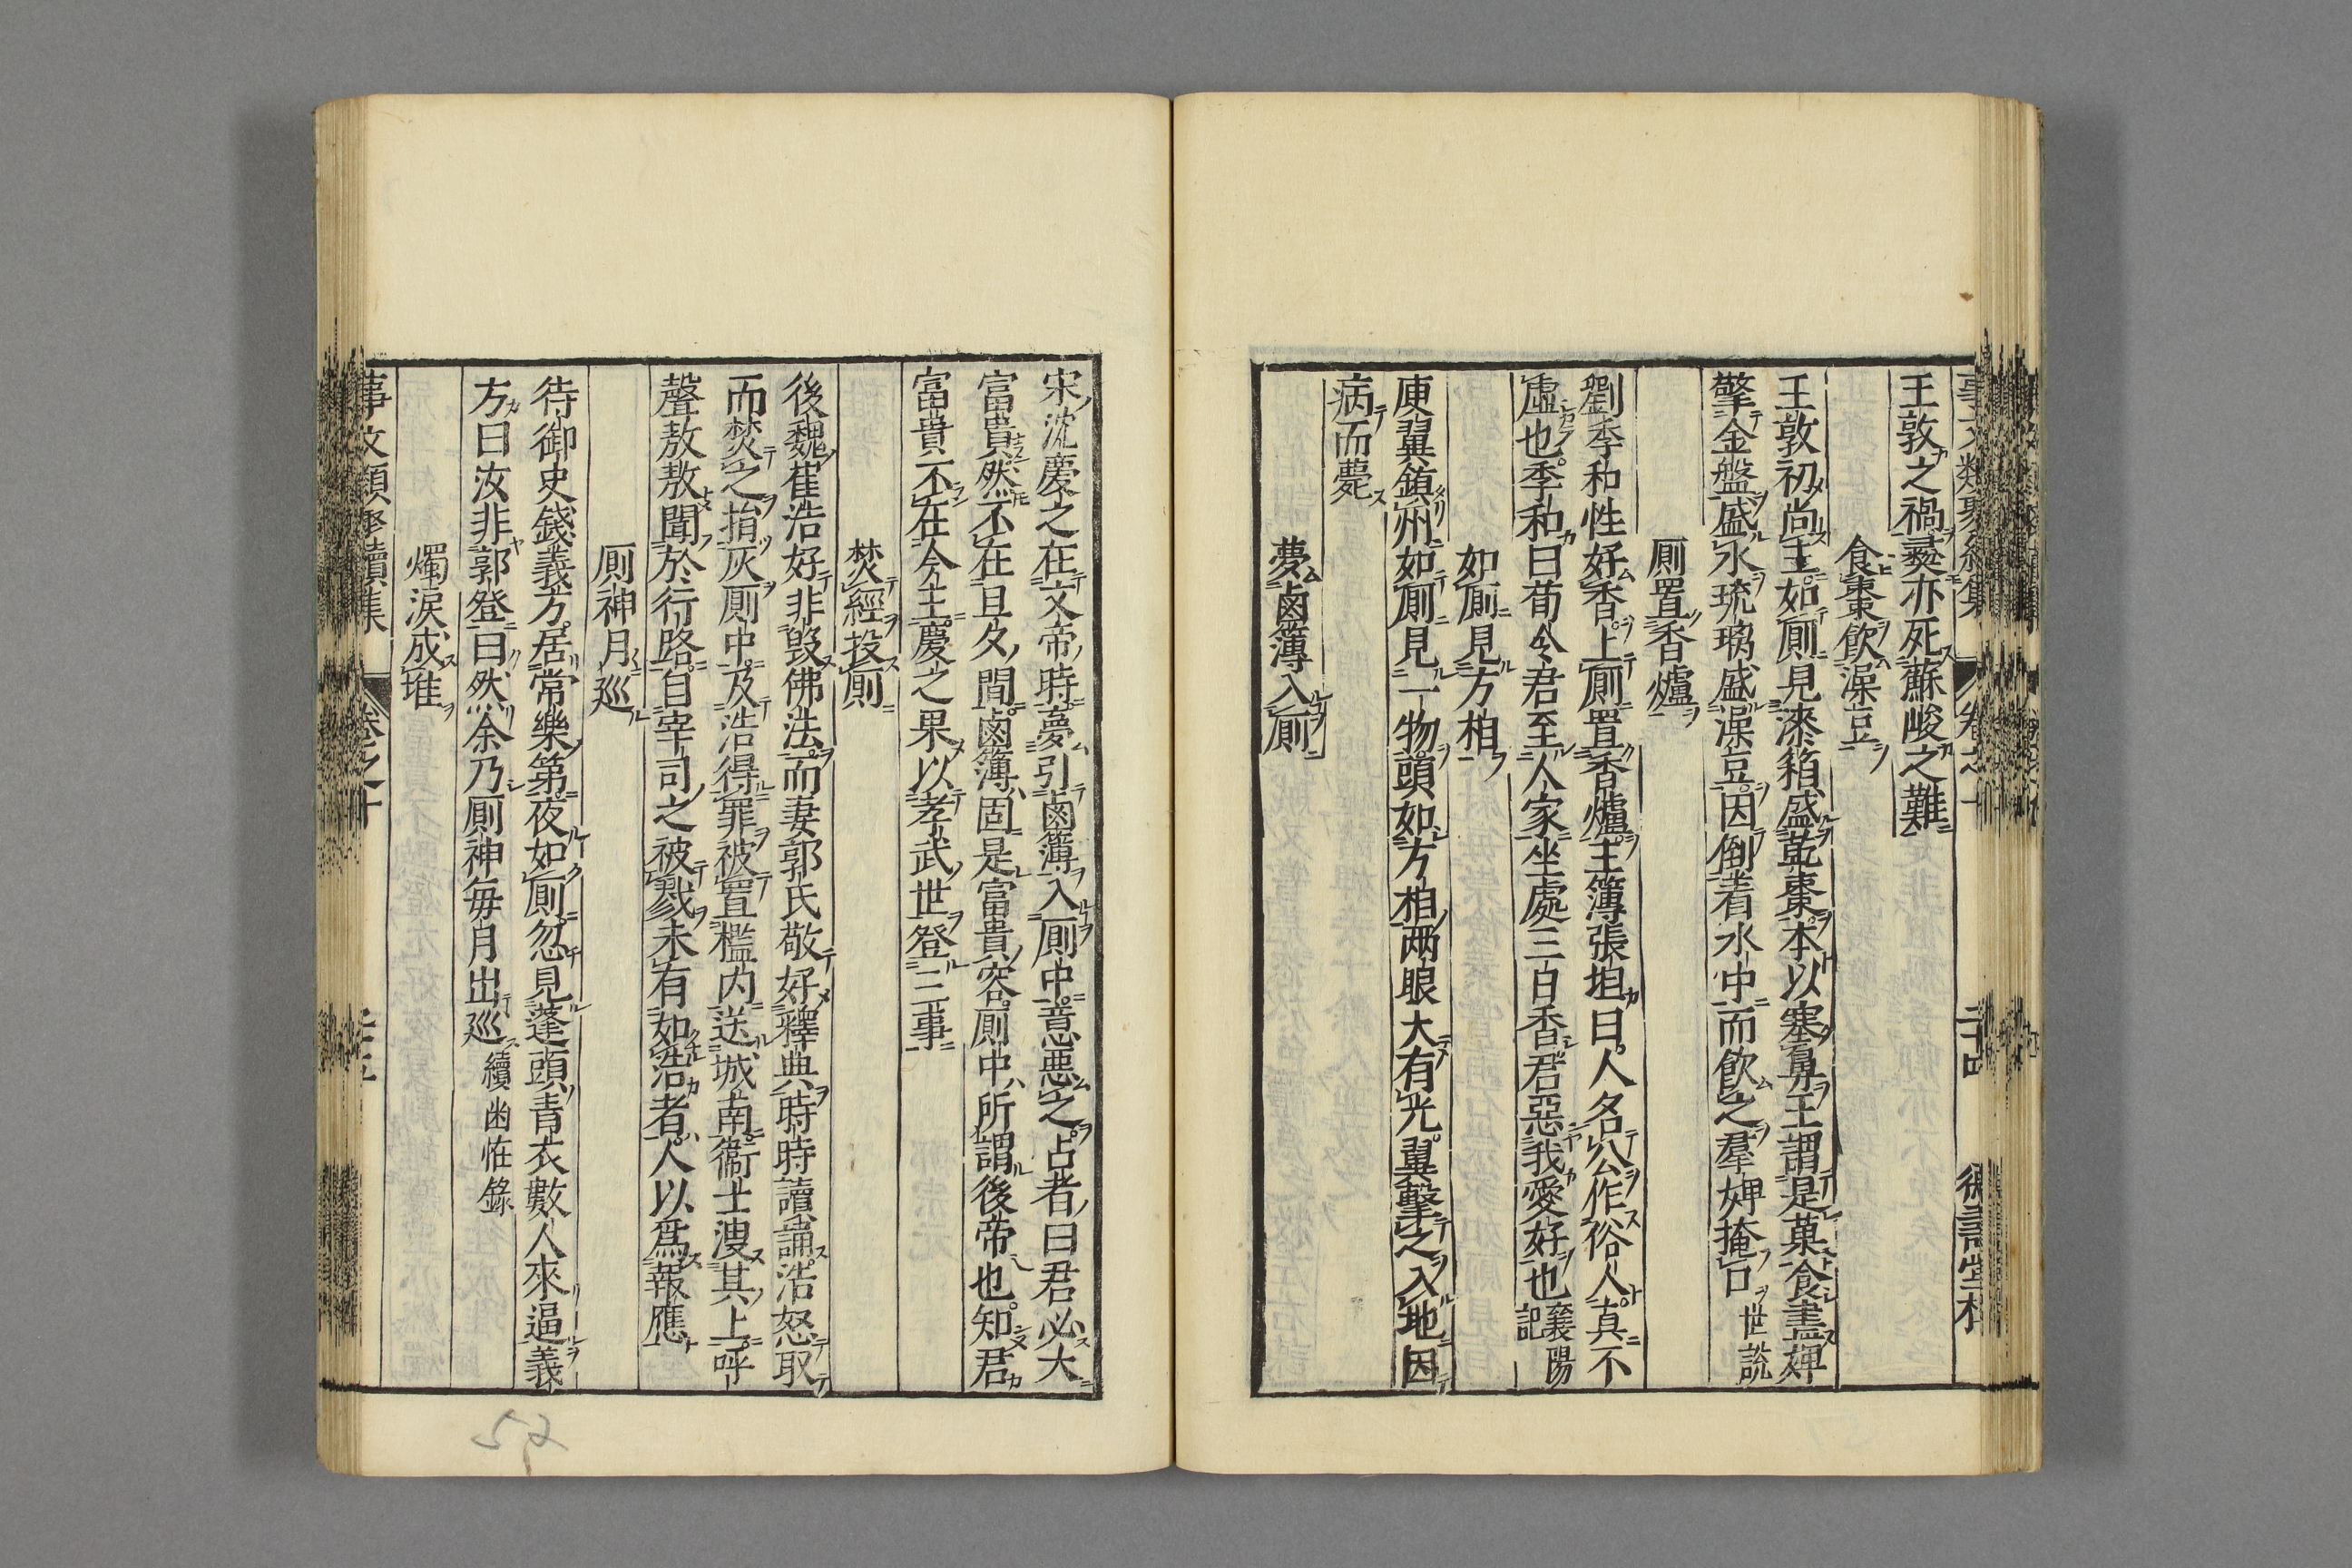 王敦之禍彞亦死蘇峻之難
食棗飲澡豆
王敦初尚主如厠見漆箱盛乾棗本以塞鼻王謂是菓食盡婢
擎金盤盛水琉璃盛澡豆因倒着水中而飲之羣婢掩口世説
厠置香爐
劉季和性好香上厠置香爐主簿張坦曰人名公作俗人真不
虛也季和曰荀令君至人家坐處三日香君惡我愛好也襄陽記
如厠見方相
庾翼鎮州如厠見一物頭如方相两眼大有光翼擊之入地因
病而薨
夢鹵簿入厠
宋沈慶之在文帝時夢引鹵簿入厠中意惡之占者曰君必大
富貴然不在旦夕間鹵簿固是富貴容厠中所謂後帝也知君
富貴不在今主慶之果以孝武世登三事
焚經投厠
後魏崔浩好非毀佛法而妻郭氏敬好釋典時時讀誦浩怒取
而焚之捐灰厠中及浩得罪被置檻内送城南衞士溲其上呼
聲敖敖聞於行路自宰司之被戮未有如浩者人以爲報應
厠神月巡
待御史錢義方居常樂第夜如厠忽見蓬頭青衣數人來逼義
方曰汝非郭登曰然余乃厠神每月出巡續幽恠錄
燭淚成堆
事文類聚續集 卷之十